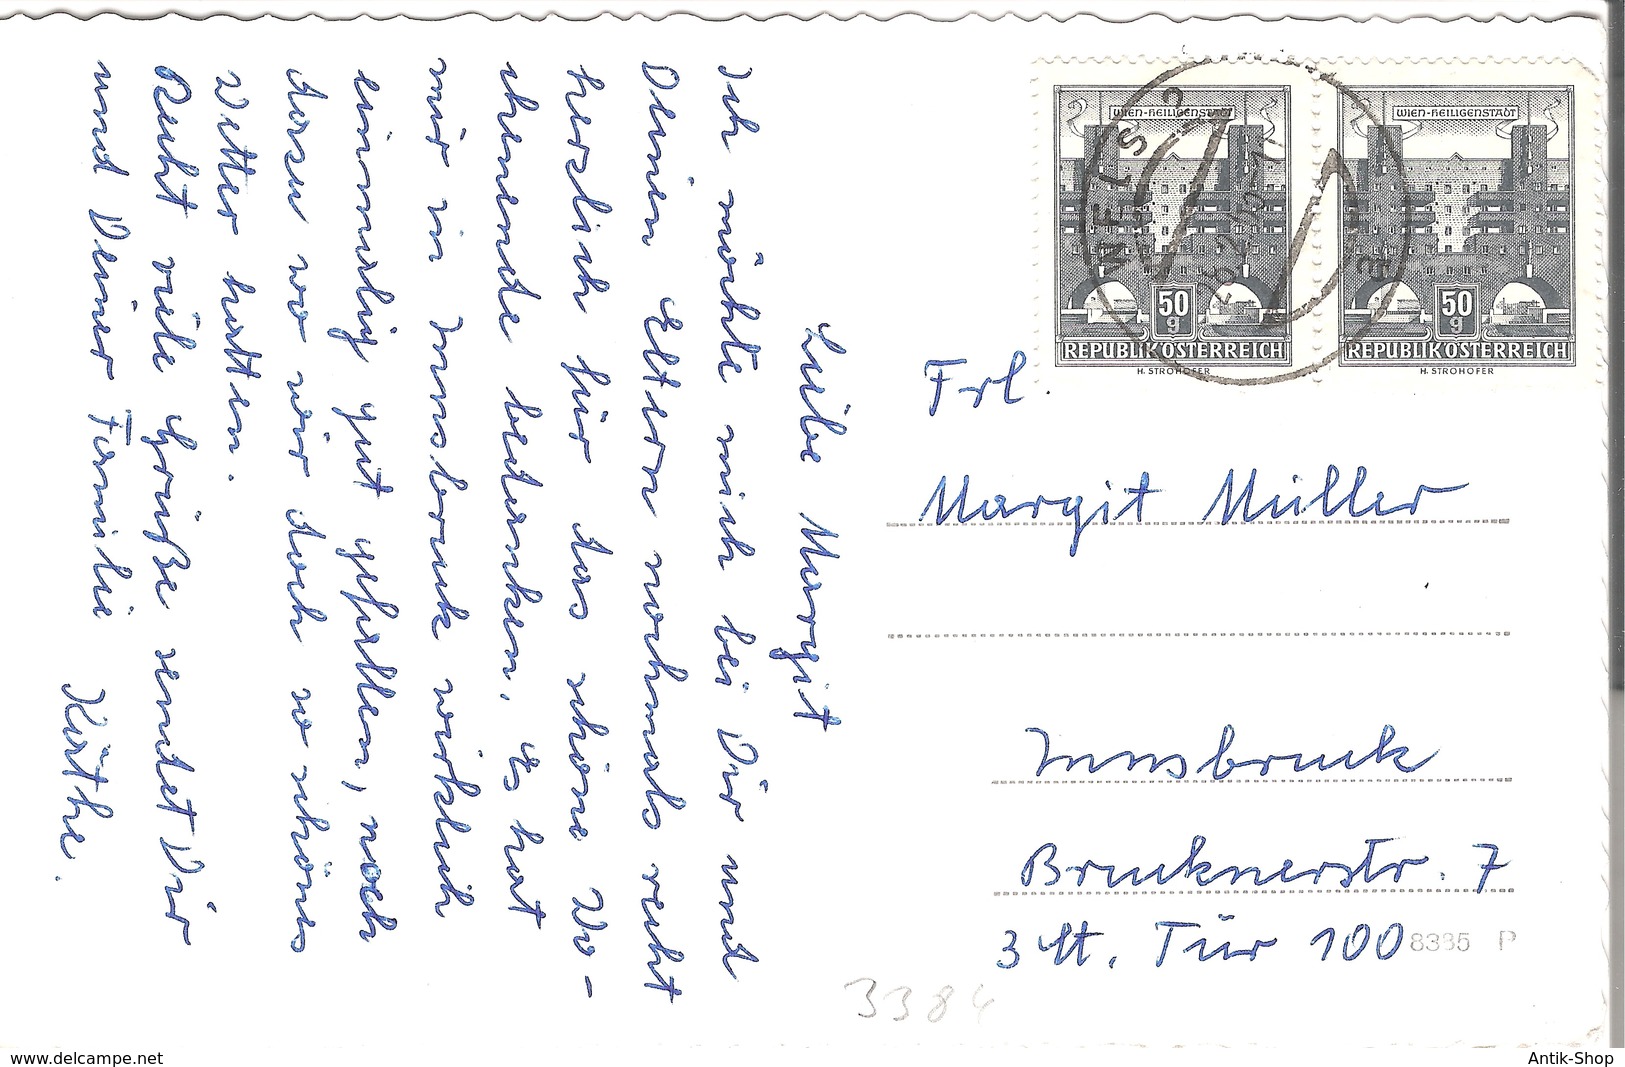 Liebe Margit
Ich möchte mich bei Dir und
Deinen Eltern nochmals recht
herzlich für das schöne Wo-
chenende bedanken. Es hat
mir in Innsbruck wirklich
einmalig gut gefallen, noch
dazu wo wir doch so schönes
Wetter hatten.
Recht viele Grüße sendet Dir
und Deiner Familie
Käthe.
WIEN-HEILIGENSTADT
50
g
REPUBLIK ÖSTERREICH
H. STROHOFER
WIEN-HEILIGENSTADT
50
g
REPUBLIK ÖSTERREICH
H. STROHOFER
WELS
Frl.
Margit Müller
Innsbruck
Brucknerstr. 7
3 St. Tür 100
8385 P
3384
www.delcampe.net
Antik-Shop